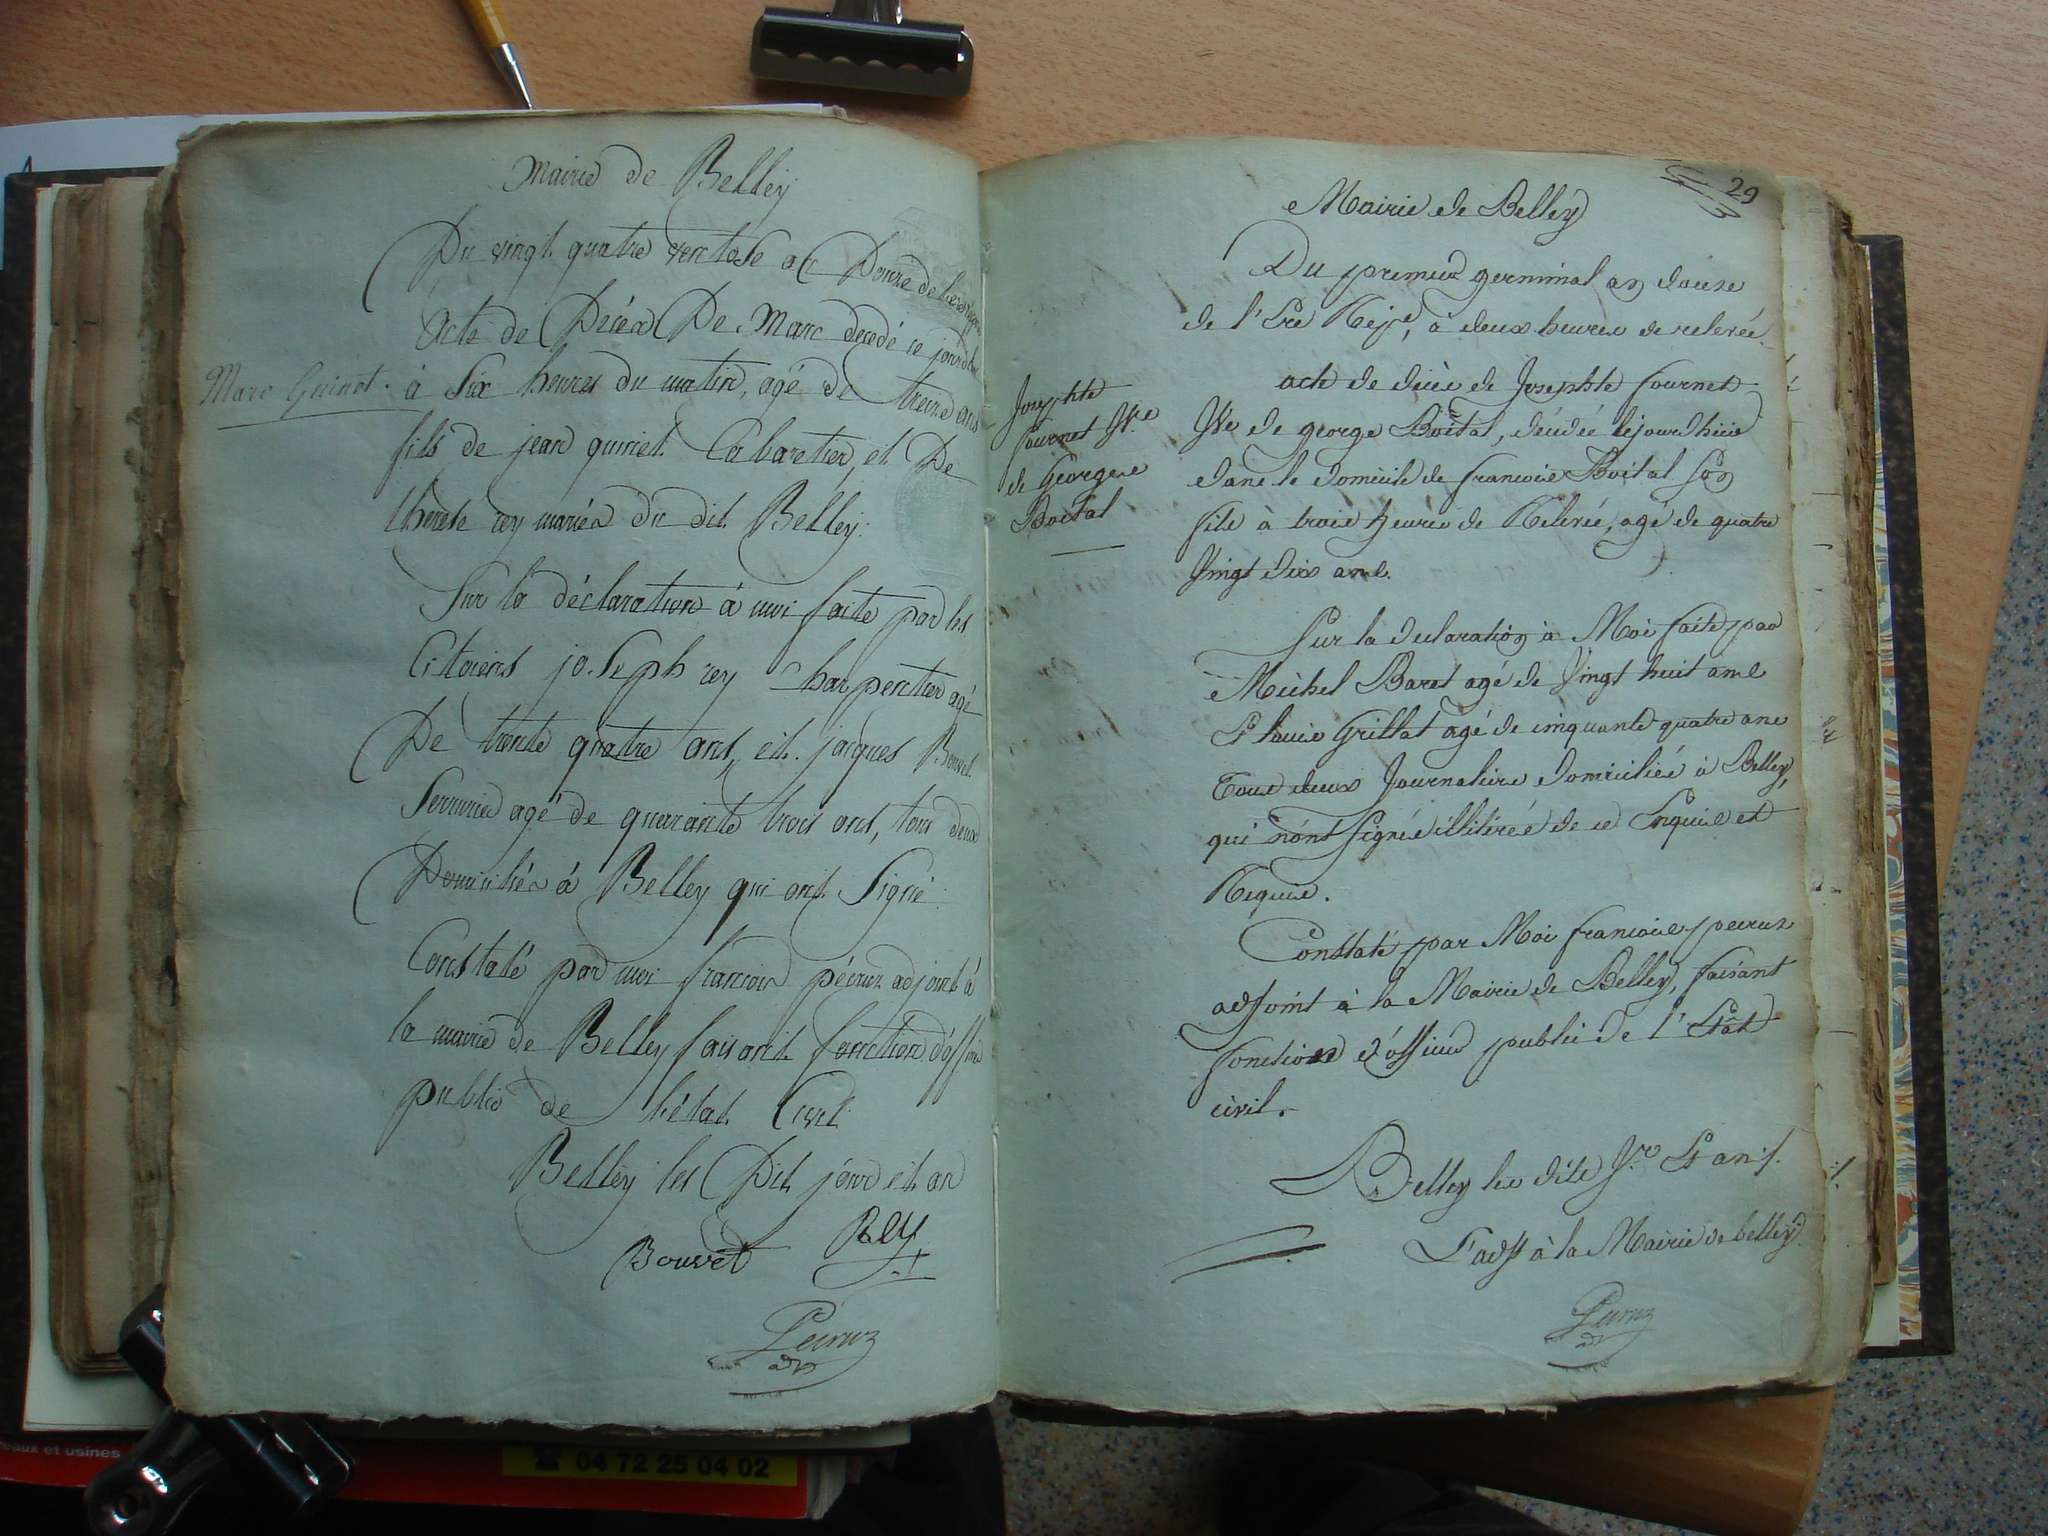 Mairie de Belley
Du vingt quatre ventose an Douze de l'ere
Acte de Décés De Marc decedé ce jourdhui
Marc Guinet.
à Six heures du matin, agé de treize ans
fils de jean guinet Cabaretier, et De
therese rey mariés du dit Belley.
Sur la déclaration à moi faite par les
Citoiens joseph rey charpentier agé
De trente quatre ans, et jacques Bouvet
Serrurier agé de quarante trois ans, tous deux
Domiciliés à Belley qui ont Signé.
Constaté par moi françois péeruz adjoint à
la mairie de Belley faisant fonction d'officier
public de l'état Civil
Belley les Dit jour et an
Bouvet Rey
Peeruz
adj
29
Mairie de Belley
Du premier germinal an douze
de l'Ere Rep.e, à deux heures de relevée.
Josephte
fournet Ve
de George
Boital
acte de décès de Josephte fournet
Ve de george Boital, décédée cejourdhuis
dans le domicile de francois Boital son
fils à trois heures de Relevée, agé de quatre
Vingt dix ans.
Sur la declaration à Moi faite par
Michel Baret agé de Vingt huit ans
Et louis Grillat agé de cinquante quatre ans
Tous deux Journaliers domiciliés à Belley,
qui n'ont Signés illitérés de ce Enquis et
Requis.
Constaté par Moi francois peeruz
adjoint à la Mairie de Belley, faisant
fonctions d'officier public de l'Etat
civil.
Belley les dits Jr Et an ./.
L'adjt à la Mairie de belley
Peeruz
adj
reaux et usines
04 72 25 04 02